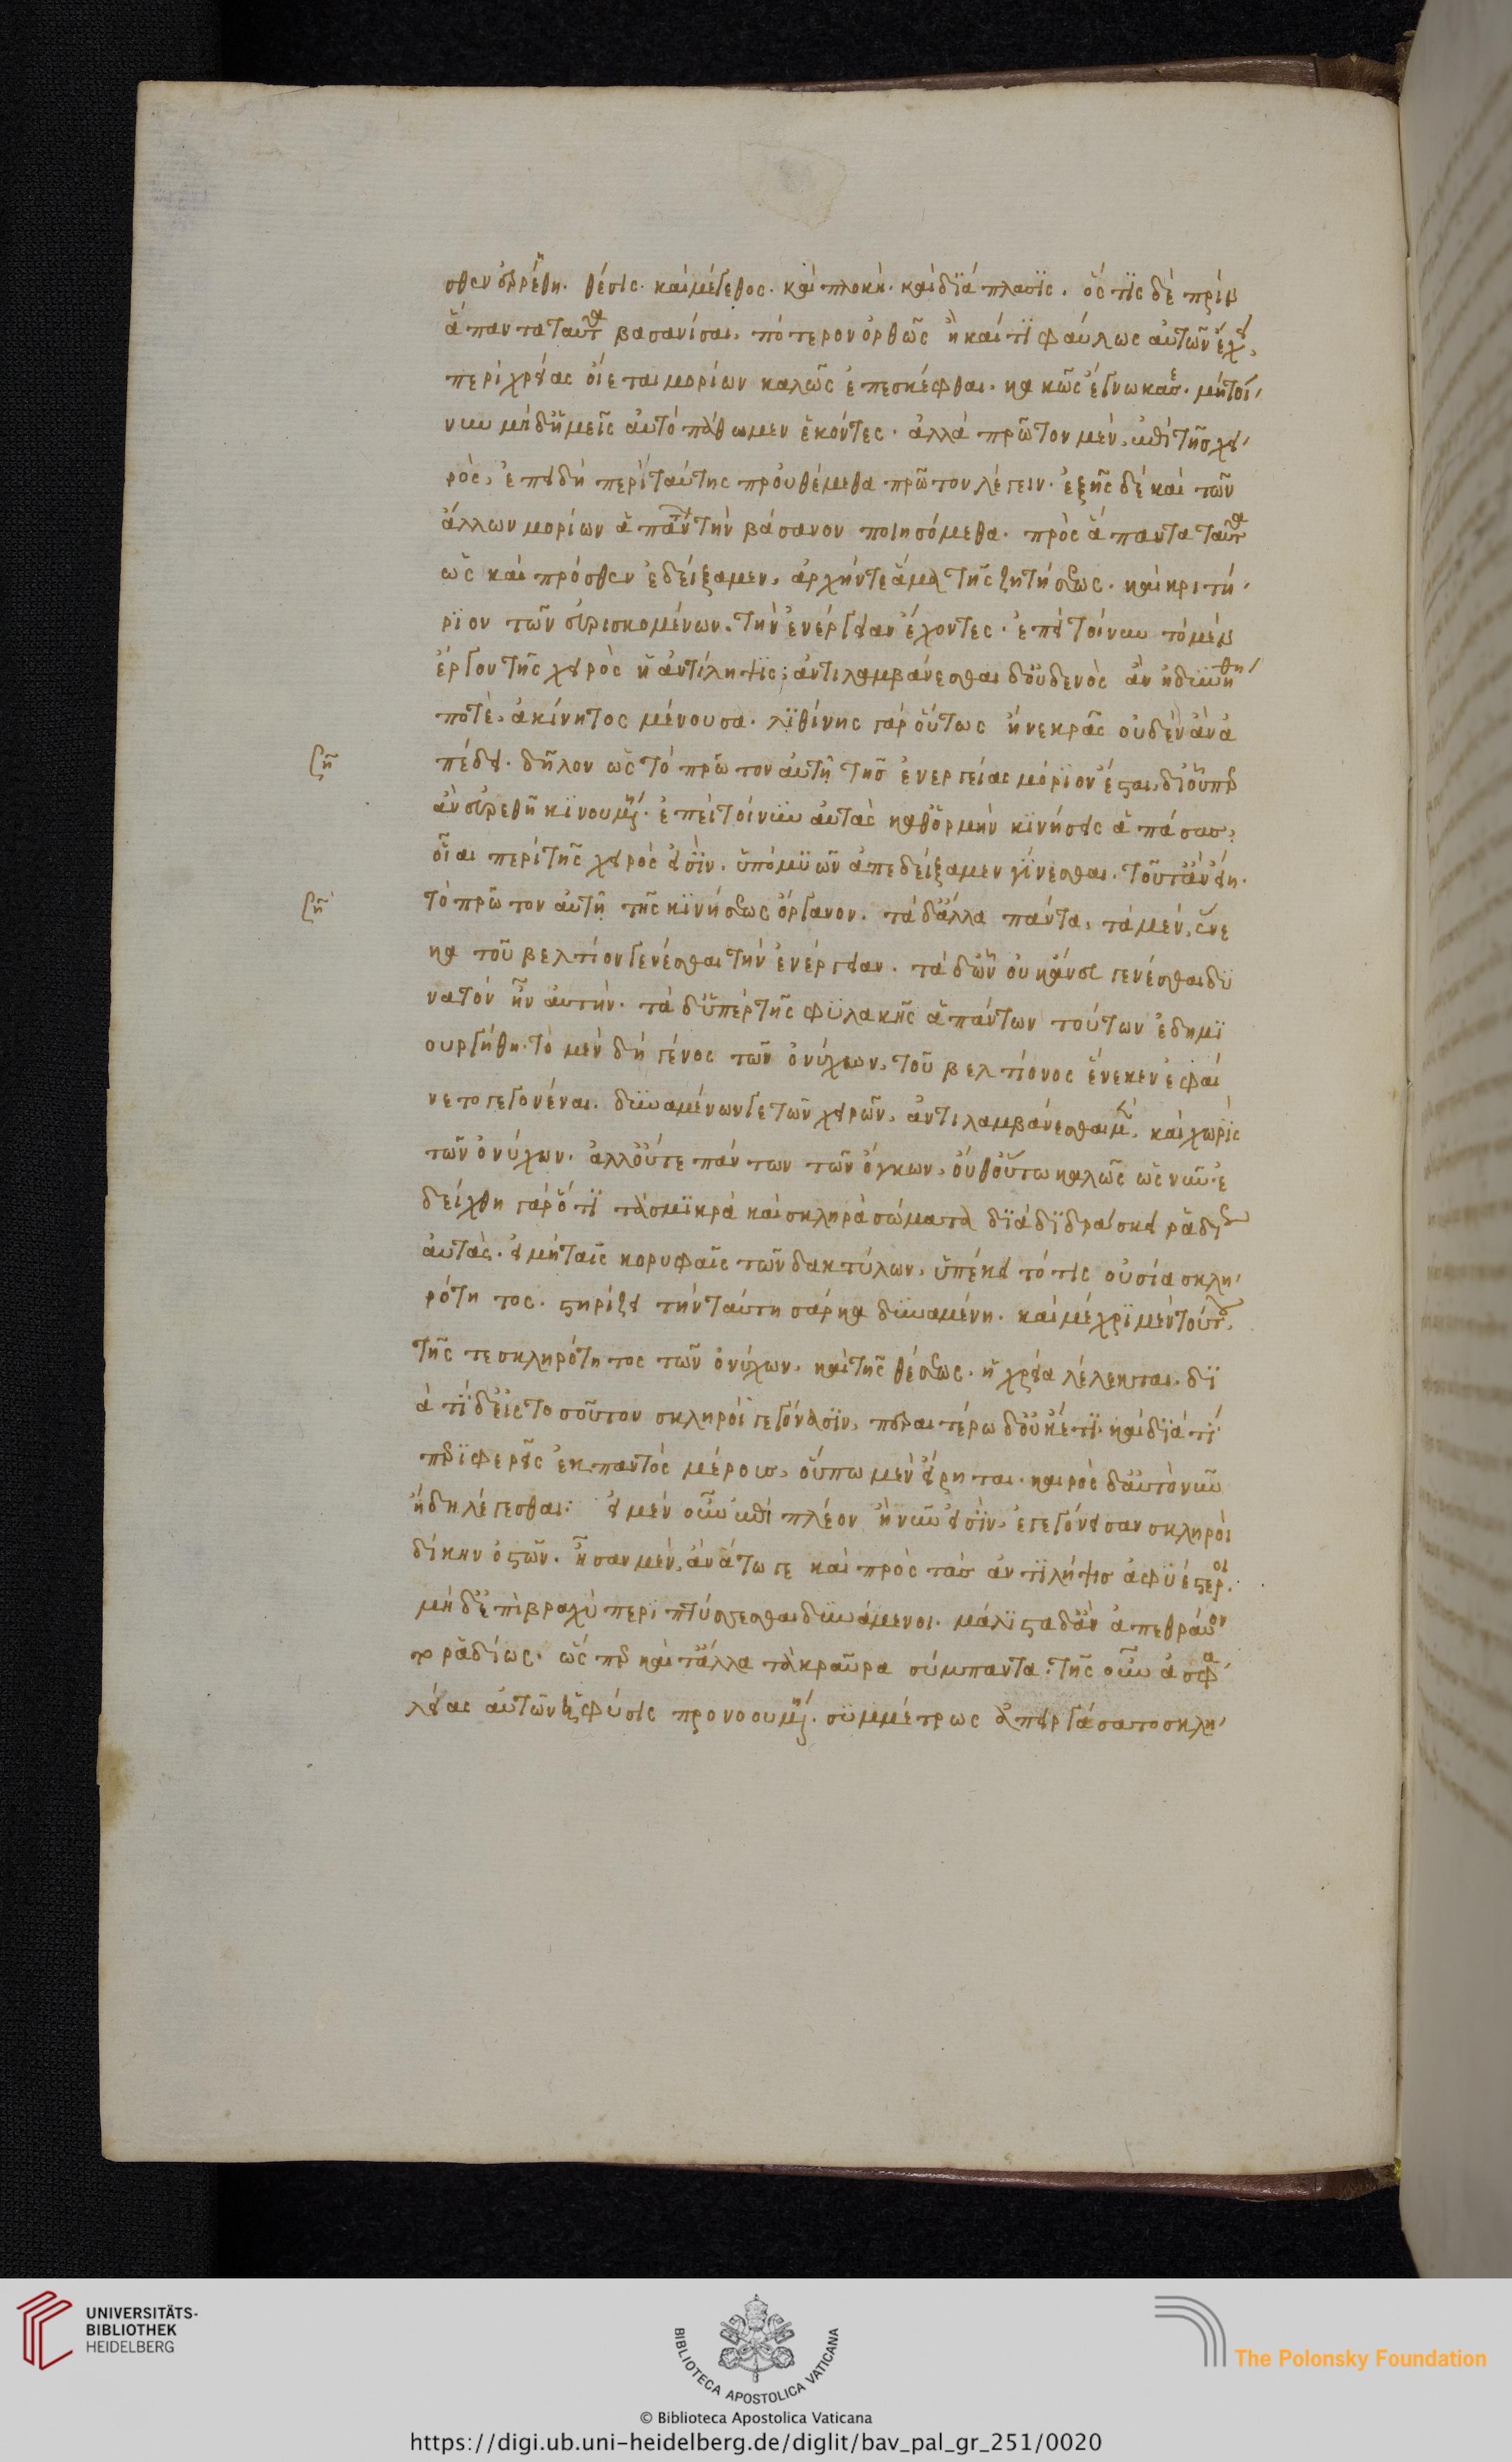 σθεν ἐρρέθη. θέσις. καὶ μέγεθος. καὶ πλοκὴ. καὶ διάπλασις. ὅς τις δὲ πρὶν
ἅπαντα ταῦτα βασανίσαι, πότερον ὀρθῶς ἢ καί τι φαύλως αὐτῶν ἔχει,
περὶ χρείας οἴεται μορίων καλῶς ἐπεσκέφθαι. κακῶς ἔγνωκεν. μὴ τοί
νυν μηδ' ἡμεῖς αὐτὸ πάθωμεν ἑκόντες. ἀλλὰ πρῶτον μὲν, ἐπὶ τῆς χει
ρὸς, ἐπειδὴ περὶ ταύτης προυθέμεθα πρῶτον λέγειν. ἑξῆς δὲ καὶ τῶν
ἄλλων μορίων ἁπάντων τὴν βάσανον ποιησόμεθα. πρὸς ἅπαντα ταῦτα
ὡς καὶ πρόσθεν ἐδείξαμεν, ἀρχήν τε ἅμα τῆς ζητήσεως. καὶ κριτή
ριον τῶν εὑρισκομένων. τὴν ἐνέργειαν ἔχοντες. ἐπεὶ τοίνυν τὸ μὲν
ἔργον τῆς χειρὸς ἡ ἀντίληψις; ἀντιλαμβάνεσθαι δ' οὐδενὸς ἂν ἠδυνήθη
ποτὲ, ἀκίνητος μένουσα. λιθίνης γὰρ οὕτως ἢ νεκρᾶς οὐδὲν ἂν ἀ
πέδει. δῆλον ὡς τὸ πρῶτον αὐτῆ τῆς ἐνεργείας μόριον ἔσται, δι' οὗπερ
ἂν εὑρεθῆ κινουμένη. ἐπεὶ τοίνυν αὐτὰς καθ' ὁρμὴν κινήσεις ἁπάσας,
οἷαι περὶ τῆς χειρός εἰσιν. ὑπὸ μυῶν ἀπεδείξαμεν γίνεσθαι. τοῦτ' ἂν εἴη.
τὸ πρῶτον αὐτῆ τῆς κινήσεως ὄργανον. τὰ δ' ἄλλα πάντα, τὰ μὲν, ἕνε
κα τοῦ βέλτιον γενέσθαι τὴν ἐνέργειαν. τὰ δ' ὧν οὐκ ἄνευ γενέσθαι δυ
νατὸν ἦν αὐτήν. τὰ δ' ὑπὲρ τῆς φυλακῆς ἁπάντων τούτων ἐδημι
ουργήθη. τὸ μὲν δὴ γένος τῶν ὀνύχων, τοῦ βελτίονος ἕνεκεν ἐφαί
νετο γεγονέναι. δυναμένων γε τῶν χειρῶν, ἀντιλαμβάνεσθαι μὲν, καὶ χωρὶς
τῶν ὀνύχων. ἀλλ' οὔτε πάντων τῶν ὄγκων, οὔθ' οὕτω καλῶς ὡς νῦν. ἐ
δείχθη γὰρ ὅτι τὰ σμικρὰ καὶ σκληρὰ σώματα διαδιδράσκει ῥαδίως
αὐτὰς. εἰ μὴ ταῖς κορυφαῖς τῶν δακτύλων, ὑπέκειτό τις οὐσία σκλη
ρότητος. στηρίζειν τὴν ταύτη σάρκα δυναμένη. καὶ μέχρι μὲν τούτου,
τῆς τε σκληρότητος τῶν ὀνύχων, καὶ τῆς θέσεως. ἡ χρεία λέλεκται. δι
ὰ τί δ' εἰς τοσοῦτον σκληροὶ γεγόνασιν, περαιτέρω δ' οὐκέτι. καὶ διὰ τί
περιφερεῖς ἐκ παντὸς μέρους, οὔπω μὲν εἴρηται. καιρὸς δ' αὐτὸ νῦν
ἤδη λέγεσθαι: εἰ μὲν οὖν ἐπὶ πλέον ἢ νῦν εἰσὶν, ἐγεγόνεισαν σκληροὶ
δίκην ὀστῶν. ἦσαν μὲν, ἂν αὐτῷ γε καὶ πρὸς τὰς ἀντιλήψεις ἀφυέστεροι.
μηδ' ἐπὶ βραχὺ περιπτύσσεσθαι δυνάμενοι. μάλιστα δ' ἂν ἀπεθραύον
το ῥαδίως. ὥς περ καὶ τἄλλα τὰ κραῦρα σύμπαντα. τῆς οὖν ἀσφα
λείας αὐτῶν ἡ φύσις προνοουμένη. συμμέτρως ἀπειργάσατο σκλη
UNIVERSITÄTS-
BIBLIOTHEK
HEIDELBERG
BIBLIOTECA APOSTOLICA VATICANA
The Polonsky Foundation
© Biblioteca Apostolica Vaticana
https://digi.ub.uni-heidelberg.de/diglit/bav_pal_gr_251/0020